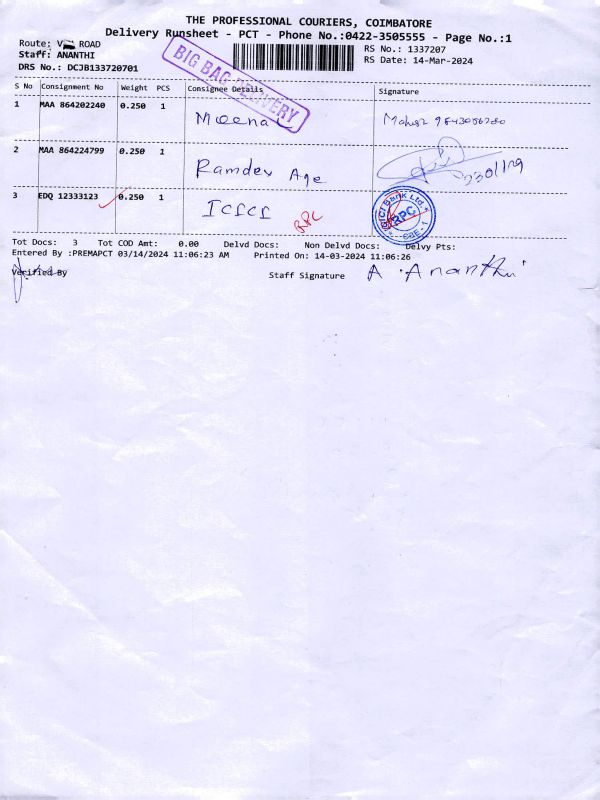 THE PROFESSIONAL COURIERS, COIMBATORE
Delivery Runsheet - PCT - Phone No.:0422-3505555 - Page No.:1
Route: ROAD
Staff: ANANTHI
DRS No.: DCJB133720701
RS No.: 1337207
RS Date: 14-Mar-2024
BIG BAG DELIVERY
S No Consignment No Weight PCS Consignee Details Signature
1 MAA 864202240 0.250 1 Meena
2 MAA 864224799 0.250 1 Ramdev Age
3 EDQ 12333123 0.250 1 ICICI RPC
ICICI Bank Ltd. RPC CBE. 1
Tot Docs: 3 Tot COD Amt: 0.00 Delvd Docs: Non Delvd Docs: Delvy Pts:
Entered By :PREMAPCT 03/14/2024 11:06:23 AM Printed On: 14-03-2024 11:06:26
Verified By Staff Signature A. Ananthi